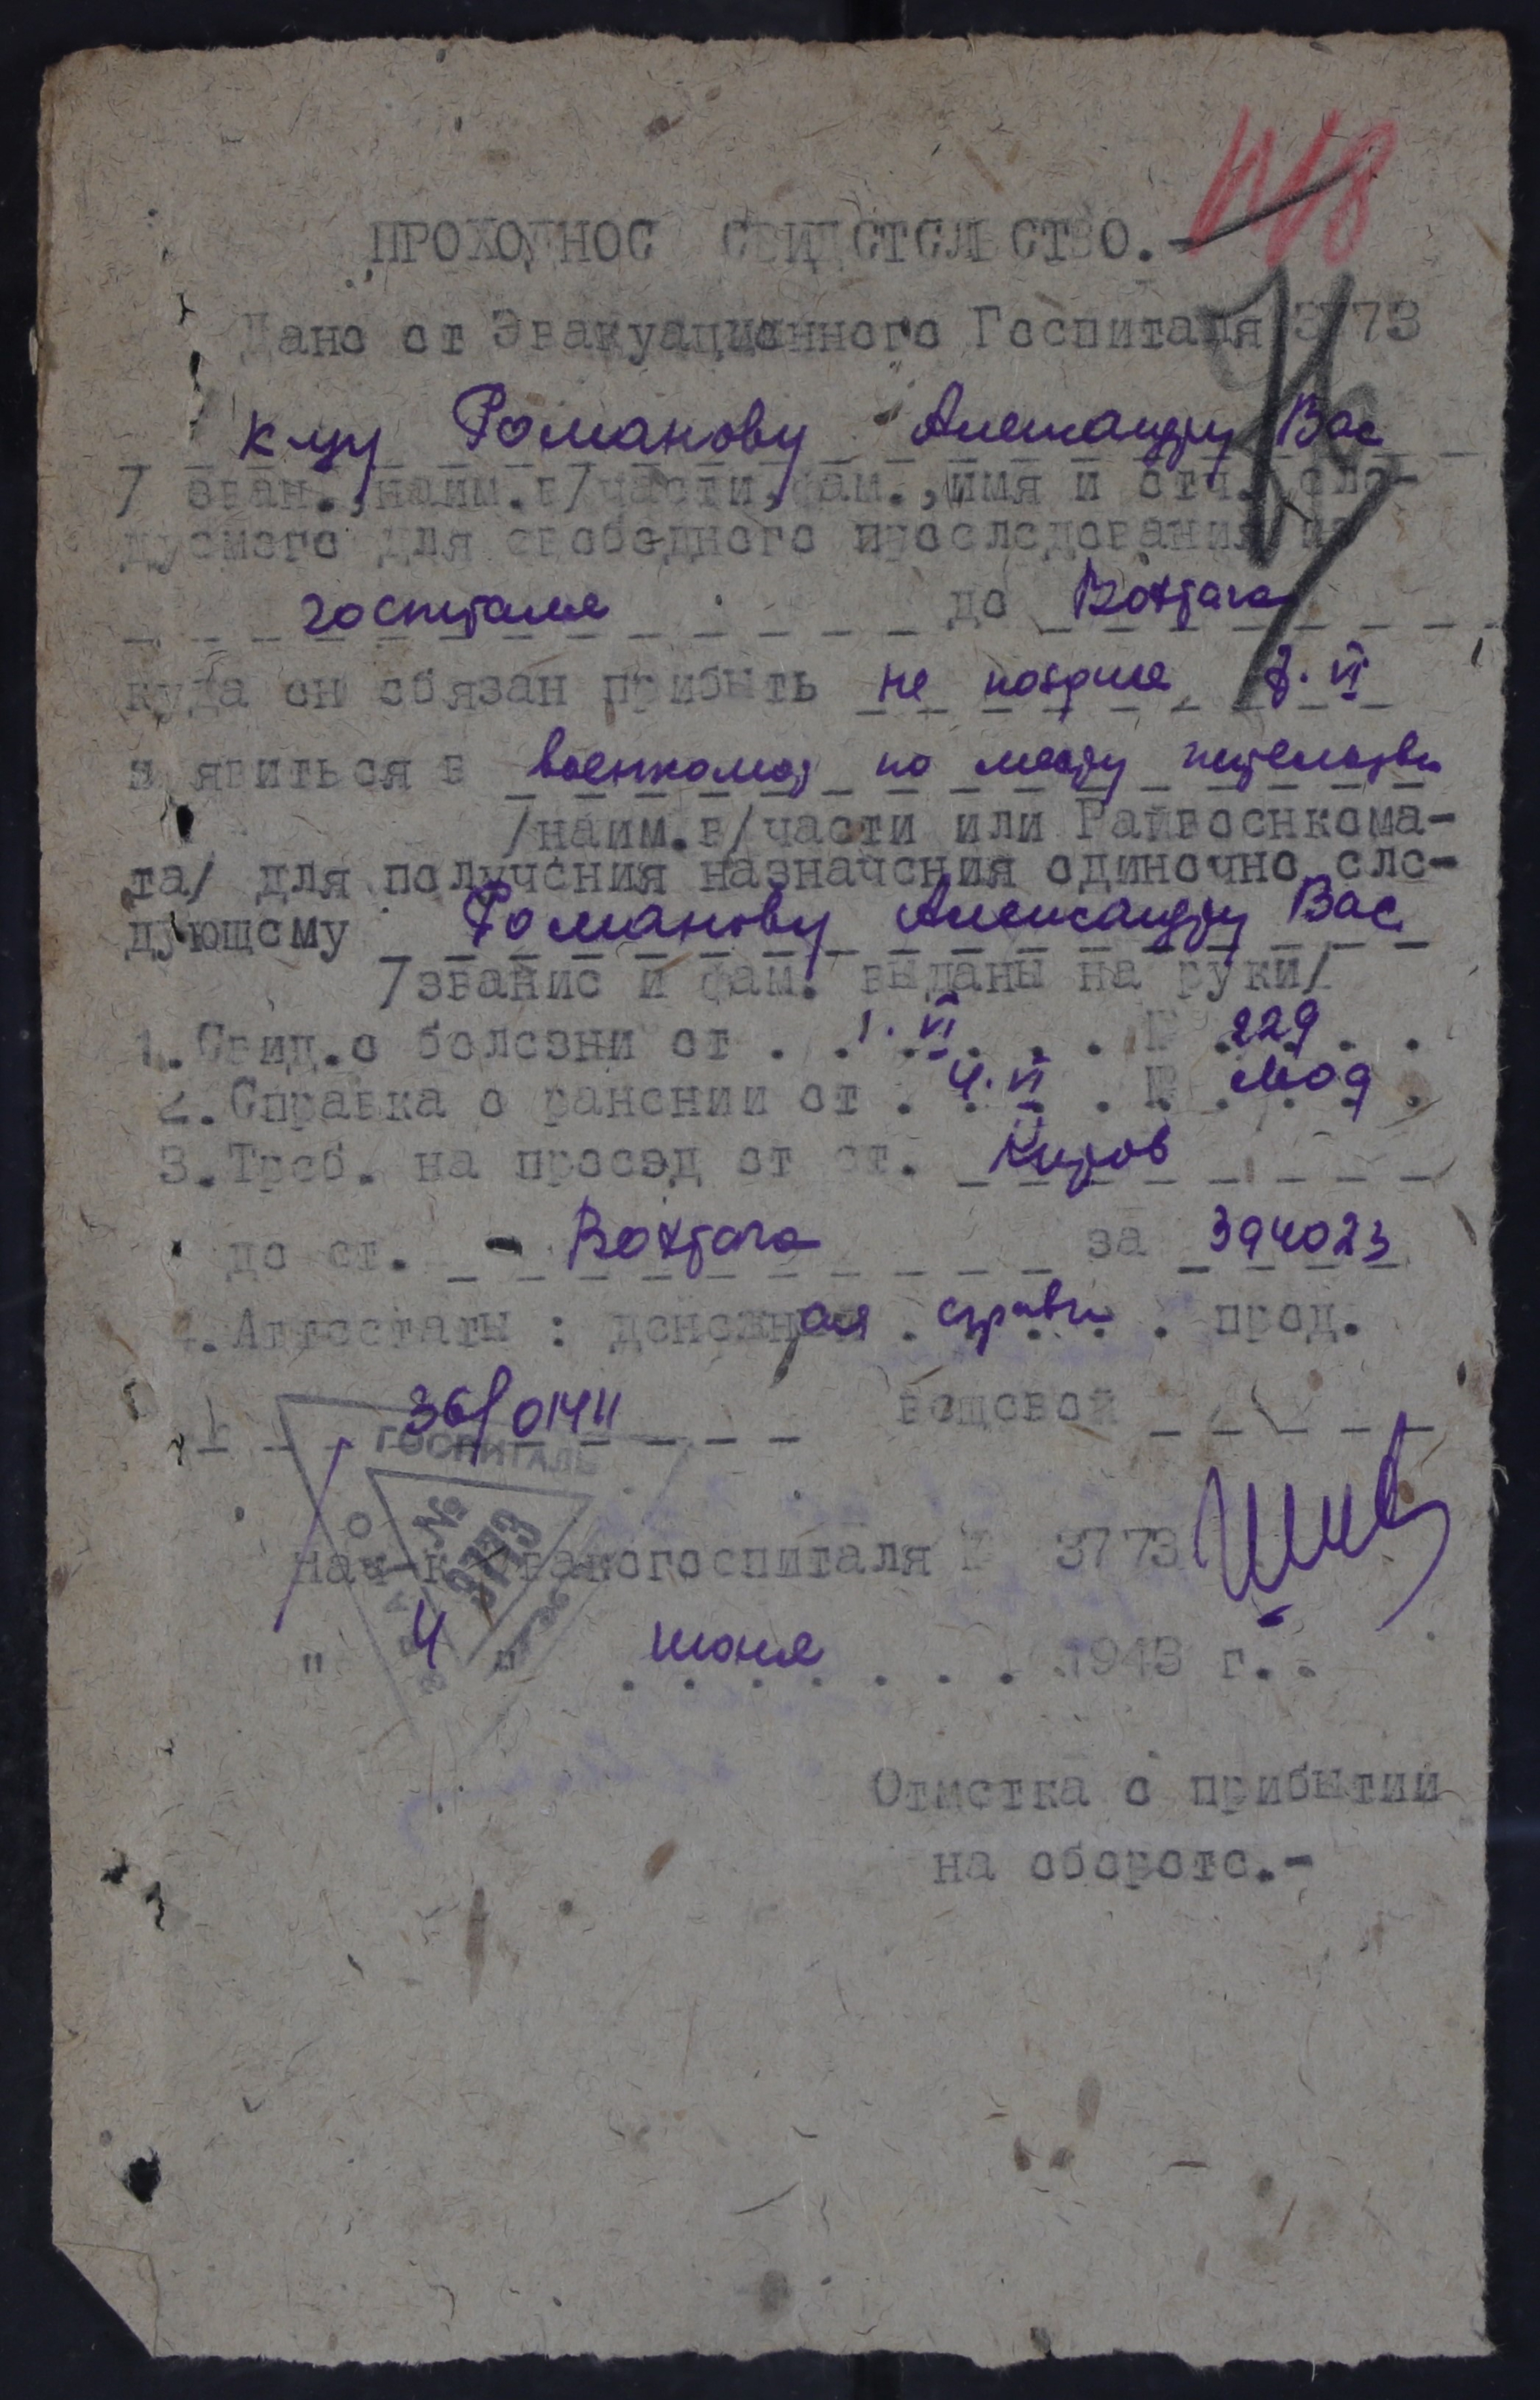 ПРОХОДНОЕ СВИДЕТЕЛЬСТВО.-
Дано от Эвакуационного Госпиталя 3773
к-цу Романову Александру Вас
/ зван., наим.в/части, фам., имя и отч. сле-
дуемого для свободного проследования из
госпиталя до Вохтога
куда он обязан прибыть не позднее 7. VI
и явиться в военкомат по месту жительства
/наим.в/части или Райвоенкома-
та/ для получения назначения одиночно сле-
дующему Романову Александру Вас.
/звание и фам. выданы на руки/
1. Свид.о болезни от . 1. VI . . . № 229 . .
2. Справка о ранении от . 4. VI . № . .
3. Треб. на проезд от ст. Киров
до ст. - Вохтога за 394023
4. Аттестаты : денежная справка . прод.
36/01411 вещевой
ГОСПИТАЛЬ
№ 3773
нач-к эвакогоспиталя № 3773
" 4 " июня . . . . 1943 г. .
Отметка о прибытии
на обороте.-